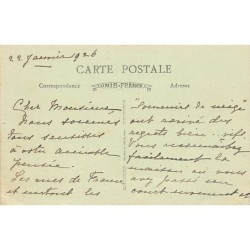 22 Janvier 1926
CARTE POSTALE
Correspondance
Adresse
Cher Monsieur,
Nous sommes
tous sensibles
à votre aimable
pensée.
Les vues de France
et surtout les
"Souvenirs de neige"
ont ravivé des
regrets bien .. vifs
Vous reconnaîtrez
facilement la
maison où nous
avons passé son